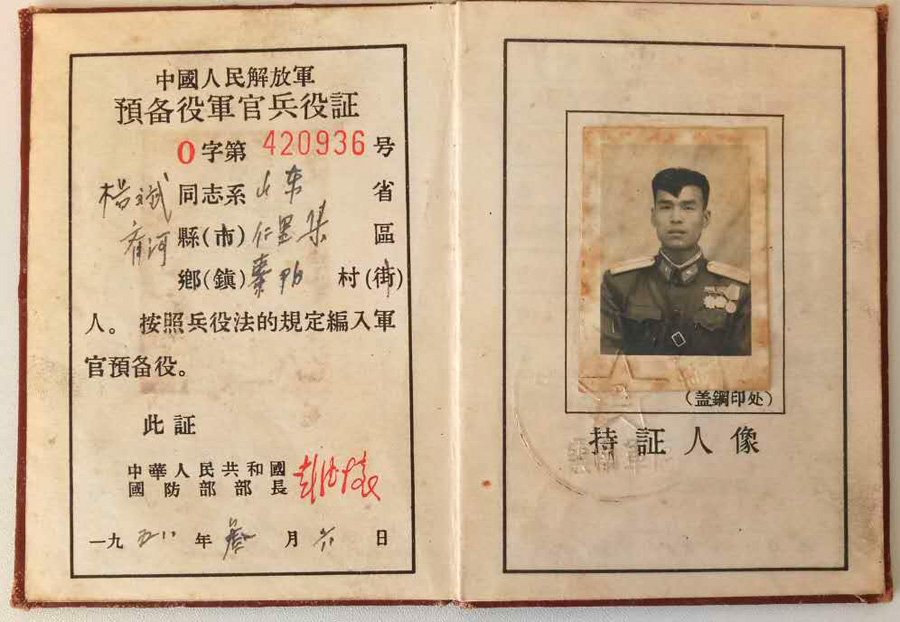 中國人民解放軍
預备役軍官兵役証
O字第 420936 号
楊文斌 同志系 山东 省
齐河 縣(市) 仁里集 區
鄉(鎮) 村(街)
人。 按照兵役法的規定編入軍
官預备役。
此 証
中華人民共和國
國防部部長 彭德懷
一九 五八 年 月 六 日
(盖鋼印处)
持証人像